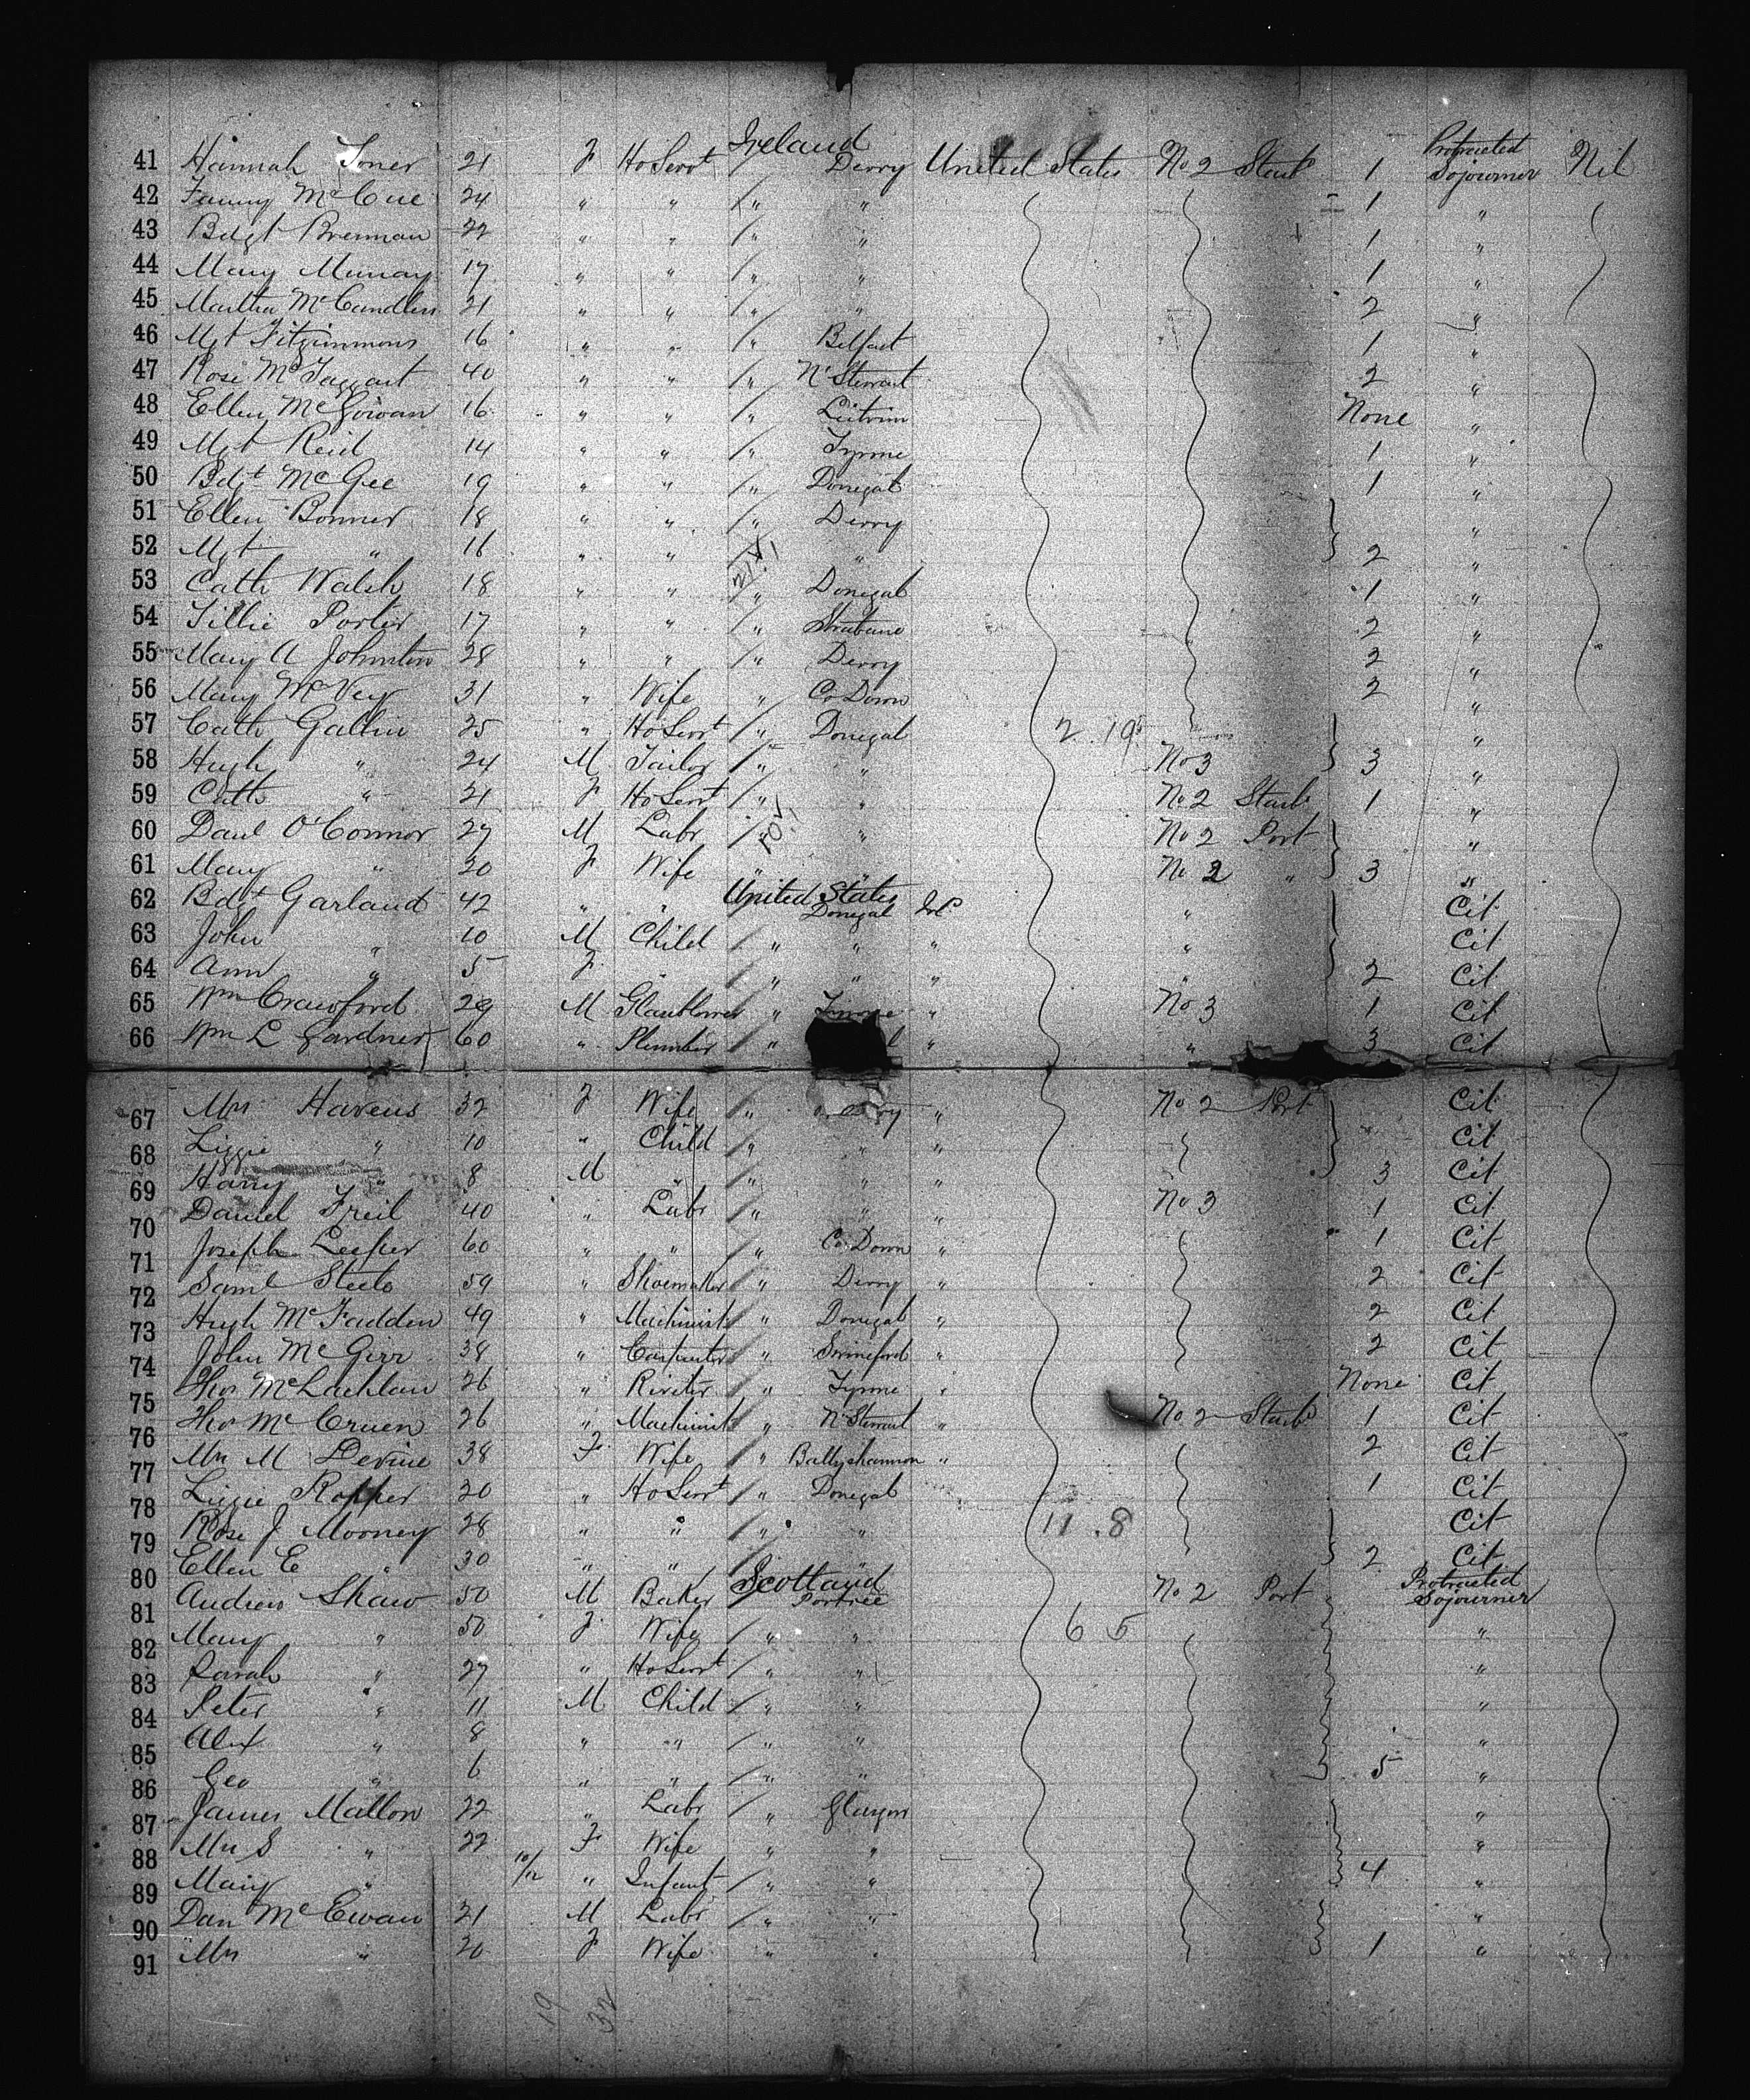 Ireland Protracted
41 Hannah Toner 21 F Ho Servt Derry United States No 2 Starb 1 Sojourner Nil
42 Fanny McCue 24 " " " " 1 "
43 Bdgt Brennan 22 " " " " 1 "
44 Mary Murray 17 " " " " 1 "
45 Martha McCandless 21 " " " " 2 "
46 Mgt Fitzimmons 16 " " " Belfast 1 "
47 Rose McTaggart 40 " " " N Stewart 2 "
48 Ellen McGowan 16 " " " Leitrim None "
49 Mgt Reid 14 " " " Tyrone 1 "
50 Bdgt McGee 19 " " " Donegal 1 "
51 Ellen Bonner 18 " " " Derry "
52 Mgt " 16 " " " 2 "
53 Cath Walsh 18 " " " Donegal 1 "
54 Tillie Porter 17 " " " Strabane 2 "
55 Mary A Johnston 28 " " " Derry 2 "
56 Mary McVey 31 " Wife " Co Down 2 "
57 Cath Gallin 25 " Ho Servt " Donegal 2 19 "
58 Hugh " 24 M Tailor " " No 3 3 "
59 Cath " 21 F Ho Servt " " No 2 Starb 1 "
60 Danl O'Connor 27 M Labr " " No 2 Port "
61 Mary " 20 F Wife " " No 2 " 3 "
United States
62 Bdgt Garland 42 " " Donegal Irl " Cit
63 John " 10 M Child " " " " Cit
64 Ann " 5 F " " " " " 2 Cit
65 Wm Crawford 29 M Glassblower " Tyrone " No 3 1 Cit
66 Wm L Gardner 60 " Plumber " " " 3 Cit
67 Mrs Havens 32 F Wife " " No 2 Port Cit
68 Lizzie " 10 " Child " " " Cit
69 Harry " 8 M " " " " 3 Cit
70 Daniel Freil 40 " Labr " " " No 3 1 Cit
71 Joseph Leeper 60 " " " Co Down " 1 Cit
72 Saml Steele 59 " Shoemaker " Derry " 2 Cit
73 Hugh McFadden 49 " Machinist " Donegal " 2 Cit
74 John McGirr 38 " Carpenter " Swineford " 2 Cit
75 Thos McLachlan 26 " Riveter " Tyrone " None Cit
76 Thos McCruen 26 " Machinist " N Stewart " No 2 Starb 1 Cit
77 Mrs M Devine 38 F Wife " Ballyshannon " 2 Cit
78 Lizzie Ropper 20 " Ho Servt " Donegal 1 Cit
79 Rose J Mooney 28 " " " " 11 8 Cit
80 Ellen E " 30 " " " 2 Cit
Scotland Protracted
81 Andrew Shaw 50 M Baker Portree No 2 Port Sojourner
82 Mary " 50 F Wife " " 6 5 "
83 Sarah " 27 " Ho Servt " " "
84 Peter " 11 M Child " " "
85 Alex " 8 " " " " "
86 Geo " 6 " " " " 5 "
87 James Mallon 22 " Labr " Glasgow "
88 Mrs S " 22 F Wife " " "
89 Mary " 10/12 " Infant " " 4 "
90 Dan McEwan 21 M Labr " " "
91 Mrs " 20 F Wife " " 1 "
19 32